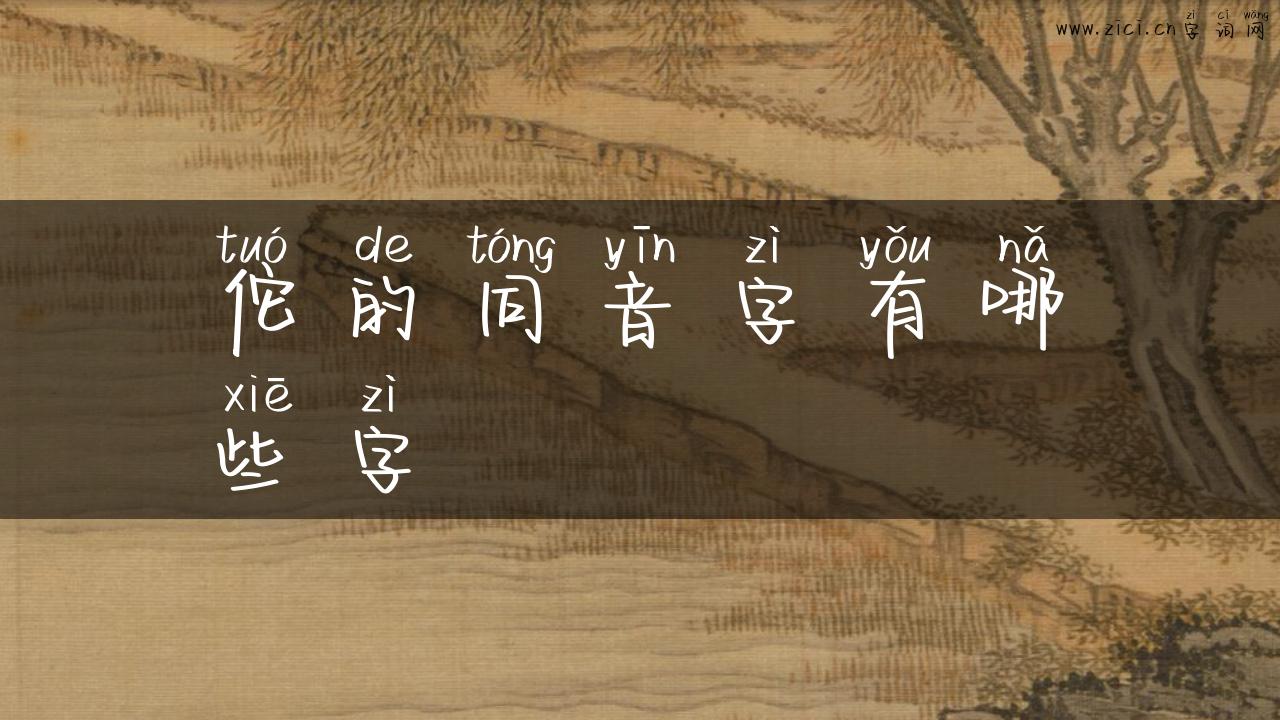 zì cí wǎng
www.zici.cn字词网
tuó de tóng yīn zì yǒu nǎ
佗的同音字有哪
xiē zì
些字